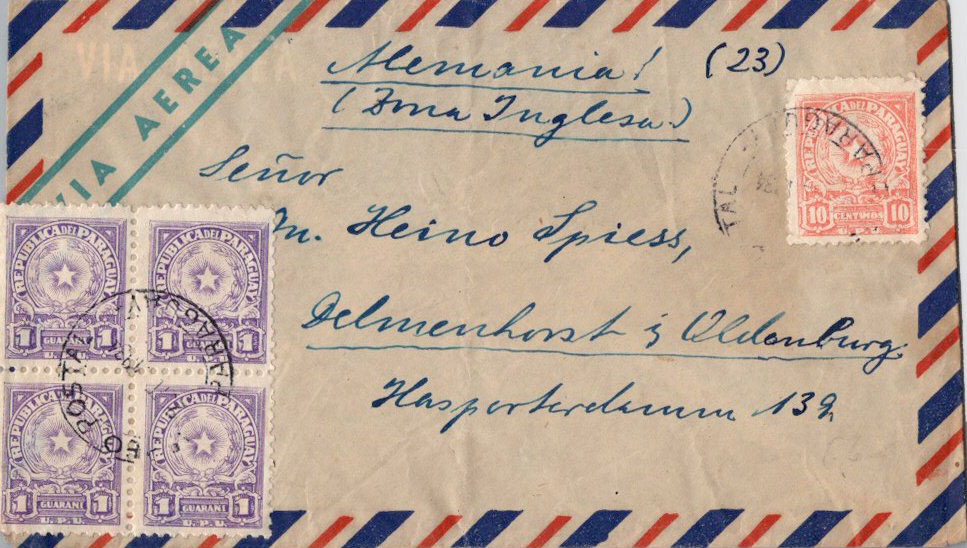 VIA AEREA
Alemania! (23)
(Zona Inglesa.)
Señor
Heino Spiess,
Delmenhorst i/ Oldenburg.
Hasporterdamm
REPUBLICA DEL PARAGUAY
10 CENTIMOS 10
PARAGU
TAL
REPUBLICA DEL PARAGUAY
1 GUARANI 1
REPUBLICA DEL PARAGUAY
1 GUARANI 1
REPUBLICA DEL PARAGUAY
1 GUARANI 1
U.P.U.
REPUBLICA DEL PARAGUAY
1 GUARANI 1
U.P.U.
EO POSTAL
PARAGUAY